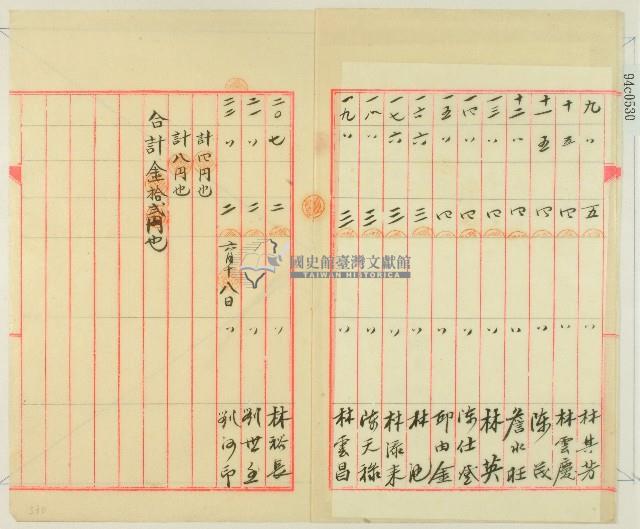 94c0530
九 〃 五 〃 林其芳
十 五 四 〃 林雲慶
十一 五 四 〃 陳茂
十二 〃 四 〃 詹水旺
一三 〃 四 〃 林英
一四 〃 四 〃 陳仕登
一五 〃 四 〃 邱由金
一六 六 三 〃 林
一七 六 三 〃 林添来
一八 〃 三 〃 陳天祿
一九 〃 三 〃 林雲昌
二〇 七 二 〃 林裕長
二一 〃 二 〃 劉世
二二 〃 二 六月十八日 〃 劉河印
計四円也
計八円也
合計金拾弐円也
國史館臺灣文獻館
TAIWAN HISTORICA